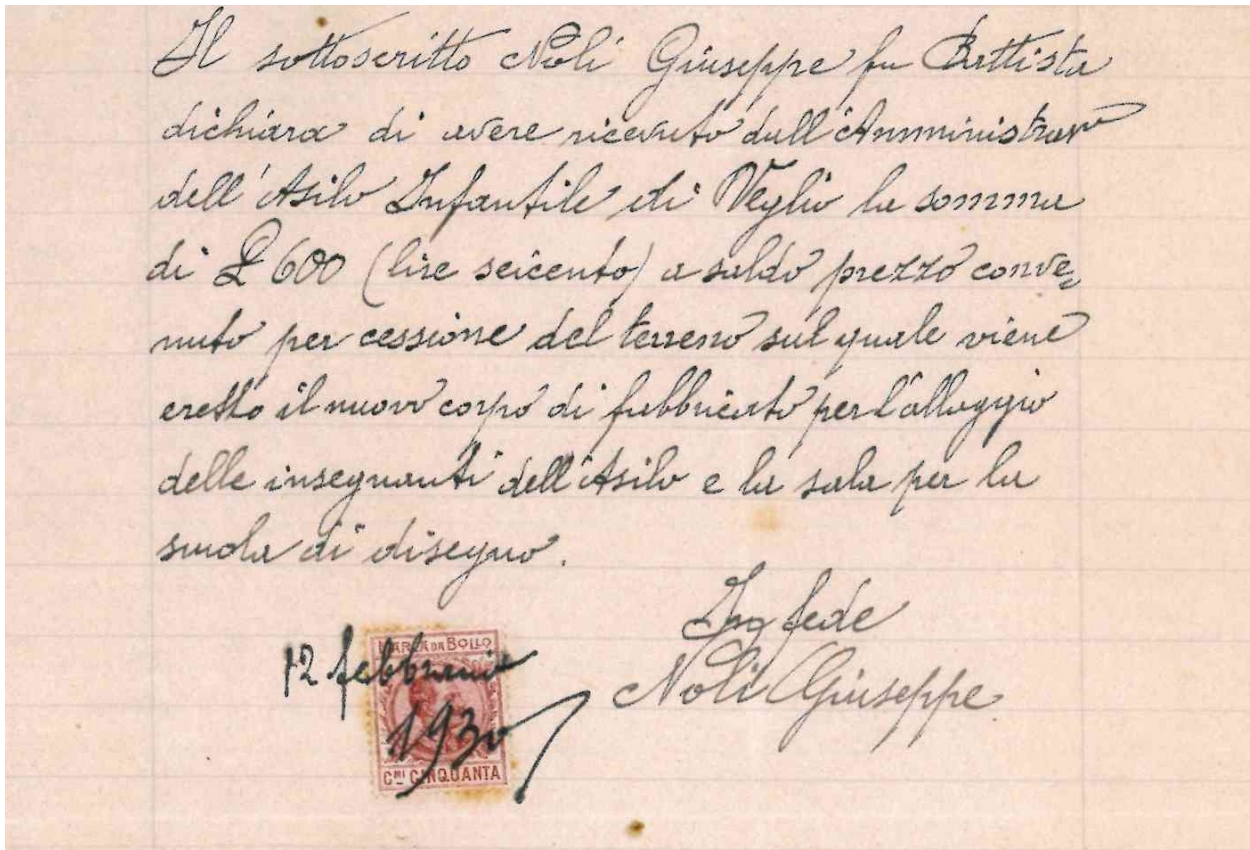 Il sottoscritto Noli Giuseppe fu Battista
dichiara di avere ricevuto dall'Amministraz
dell'Asilo Infantile di Veglio la somma
di £ 600 (lire seicento) a saldo prezzo conve=
nuto per cessione del terreno sul quale viene
eretto il nuovo corpo di fabbricato per l'alloggio
delle insegnanti dell'Asilo e la sala per la
scuola di disegno.
In fede
Noli Giuseppe
MARCA DA BOLLO
12 febbraio
1930
CMI CINQUANTA